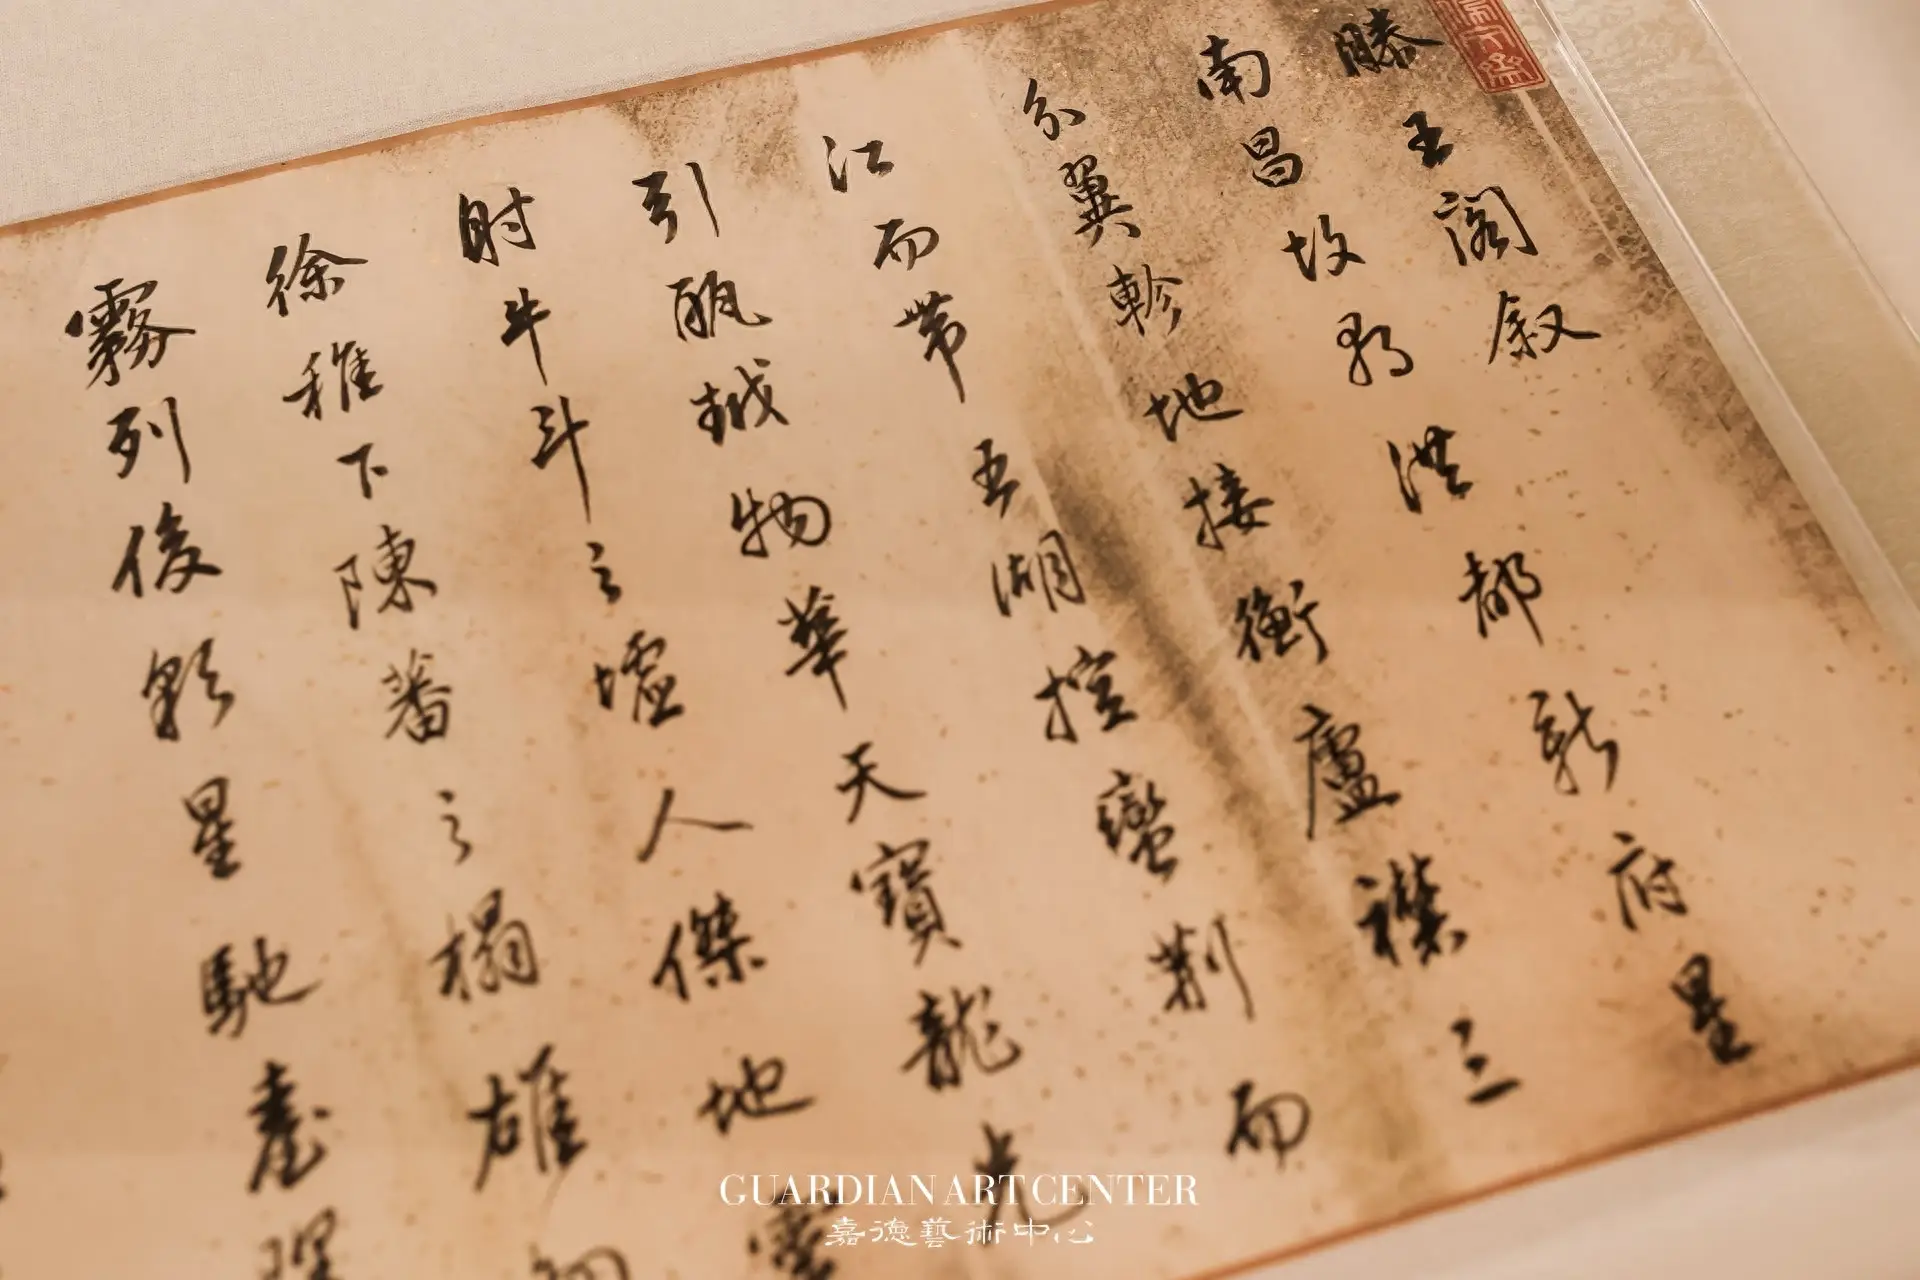 滕王閣叙
南昌故郡洪都新府星
分翼軫地接衡廬襟三
江而帶五湖控蠻荆而
引甌越物華天寶龍光
射牛斗之墟人傑地靈
徐稚下陳蕃之榻雄
霧列俊彩星馳臺隍
GUARDIAN ART CENTER
嘉德藝術中心